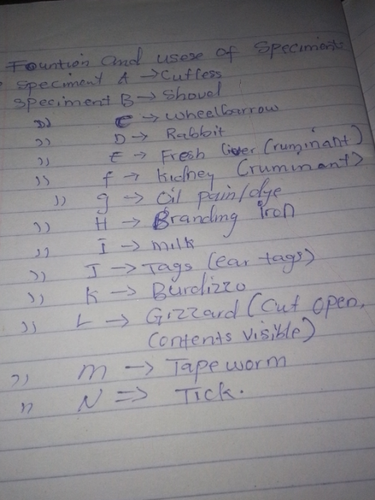 Fountion and usese of Speciments
Speciment A → Cutless
Speciment B → Shovel
,, C → wheelbarrow
,, D → Rabbit
,, E → Fresh liver (ruminant)
,, f → Kidney (ruminant)
,, g → Oil pain/dye
,, H → Branding Iron
,, I → milk
,, J → Tags (ear tags)
,, K → Burdizzo
,, L → Gizzard (Cut open,
contents visible)
,, M → Tape worm
,, N => Tick.